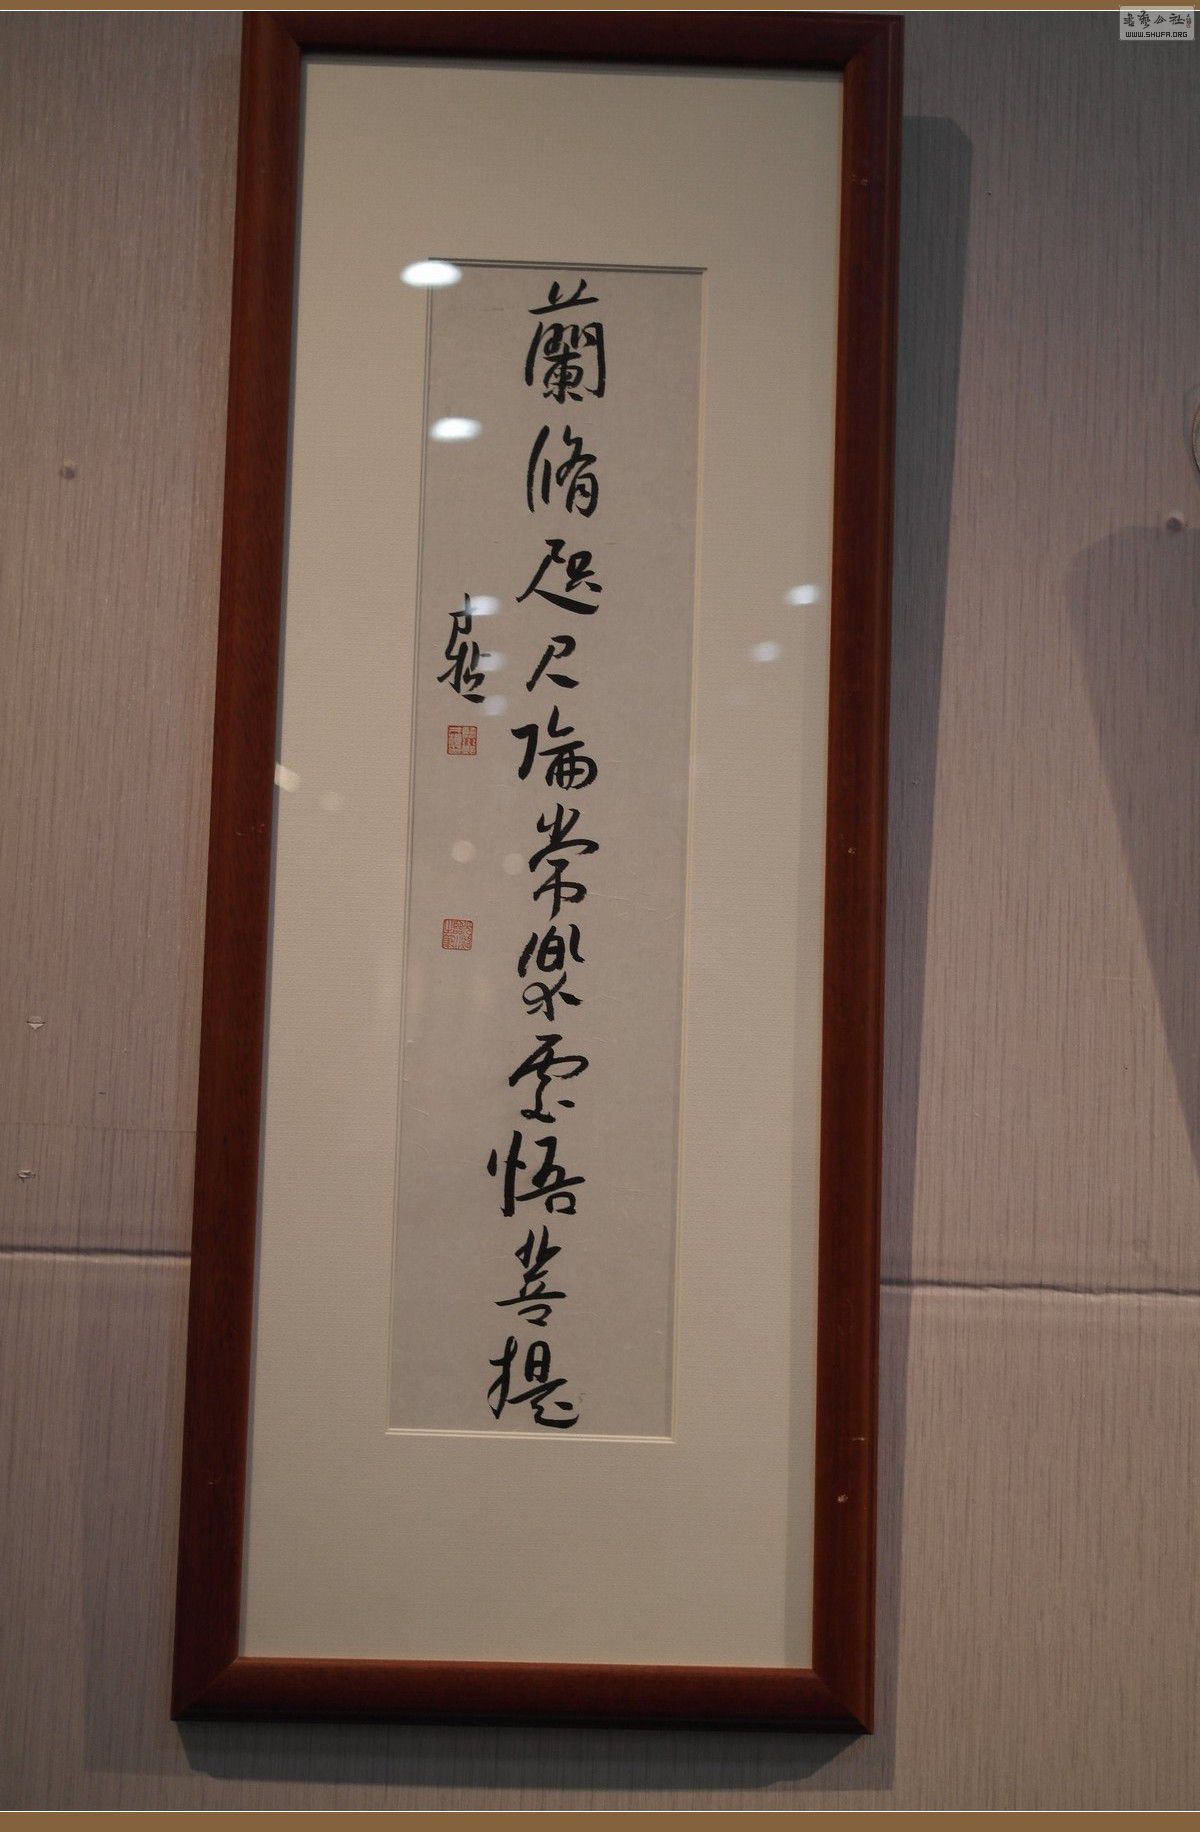 書藝公社
WWW.SHUFA.ORG
蘭脩咫尺論常樂處悟菩提